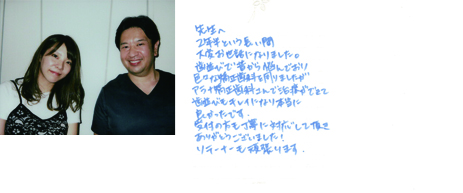 先生へ
2年半という長い間
大変お世話になりました。
歯並びで昔から悩んでおり
色々な矯正歯科を回りましたが
アラタ矯正歯科さんで治療ができて
歯並びもキレイになり本当に
良かったです。
受付の方も丁寧に対応して頂き
ありがとうございました!
リテーナーも頑張ります。